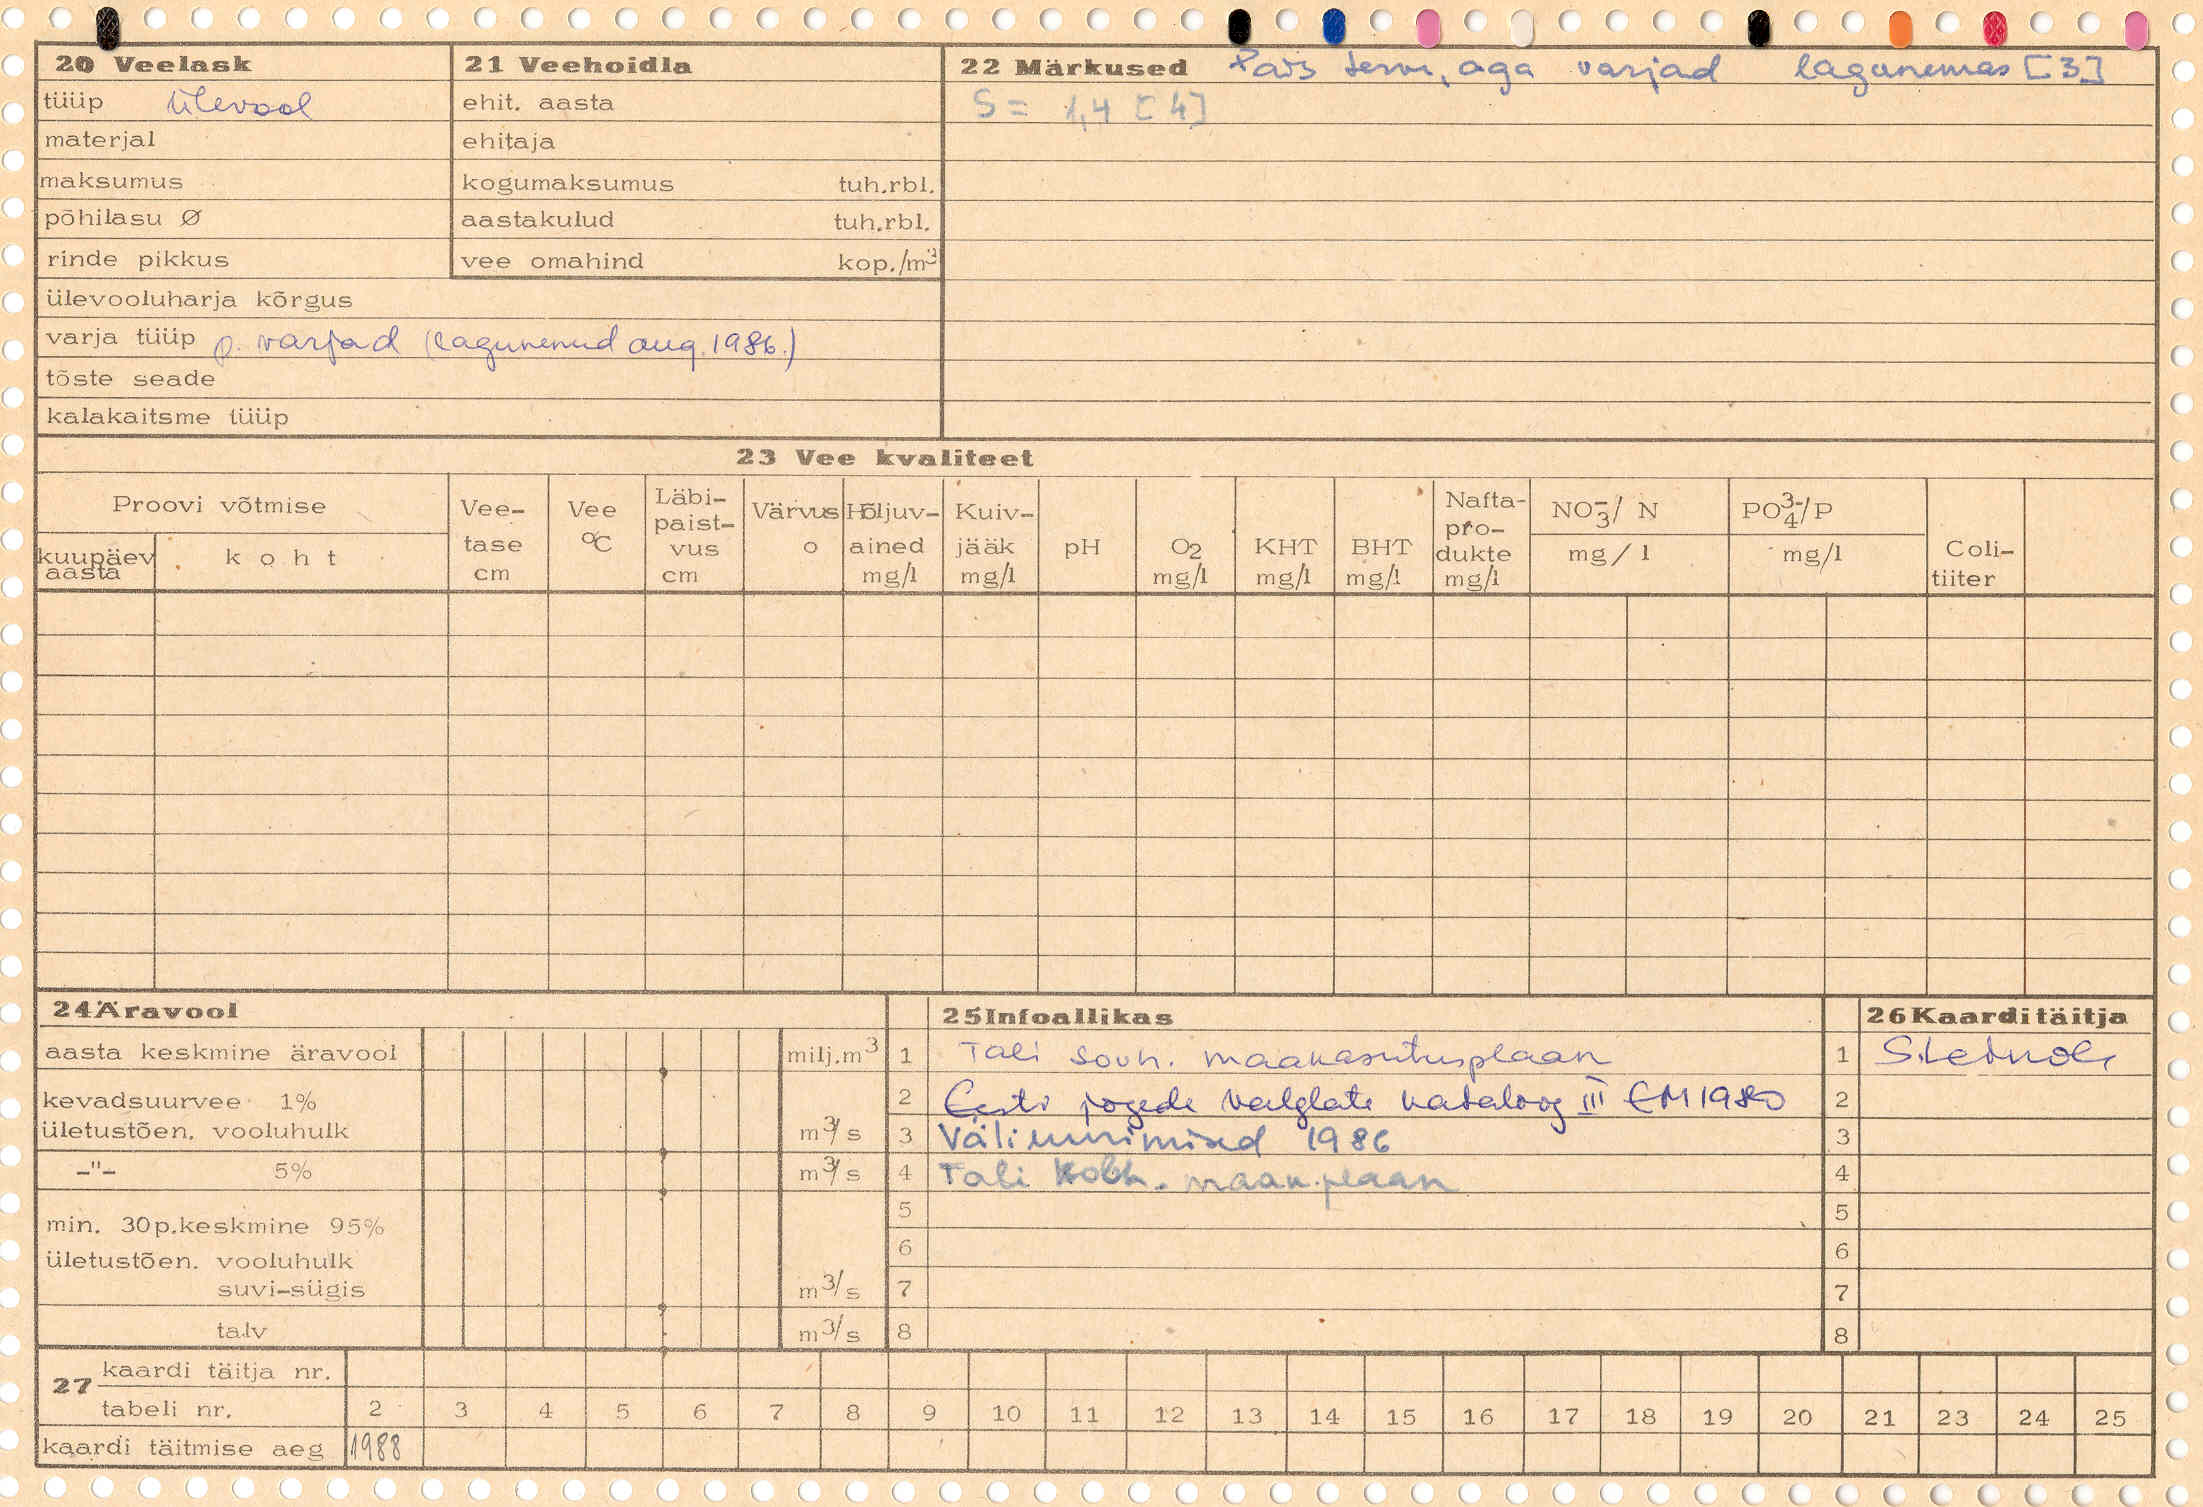 20 Veelask
tüüp ülevool
materjal
maksumus
põhilasu Ø
rinde pikkus
ülevooluharja kõrgus
varja tüüp p. varjad (lagunenud aug. 1986.)
tõste seade
kalakaitsme tüüp
21 Veehoidla
ehit. aasta
ehitaja
kogumaksumus tuh.rbl.
aastakulud tuh.rbl.
vee omahind kop./m³
22 Märkused Pais terve, aga varjad lagunemas [3]
S = 1,4 [4]
23 Vee kvaliteet
Proovi võtmise
kuupäev aasta
koht
Vee-
tase
cm
Vee
°C
Läbi-
paist-
vus
cm
Värvus
o
Hõljuv-
ained
mg/l
Kuiv-
jääk
mg/l
pH
O2
mg/l
KHT
mg/l
BHT
mg/l
Nafta-
pro-
dukte
mg/l
NO3-/ N
mg/l
PO4 3-/P
mg/l
Coli-
tiiter
24 Äravool
aasta keskmine äravool milj.m³
kevadsuurvee 1%
ületustõen. vooluhulk m³/s
-"- 5% m³/s
min. 30p.keskmine 95%
ületustõen. vooluhulk
suvi-sügis m³/s
talv m³/s
25 Infoallikas
1 Tali sovh. maakasutusplaan
2 Eesti jõgede valglate kataloog III EM 1980
3 Väliuurimised 1986
4 Tali kolh. maak.plaan
5
6
7
8
26 Kaardi täitja
1
2
3
4
5
6
7
8
27 kaardi täitja nr.
tabeli nr. 2 3 4 5 6 7 8 9 10 11 12 13 14 15 16 17 18 19 20 21 23 24 25
kaardi täitmise aeg 1988